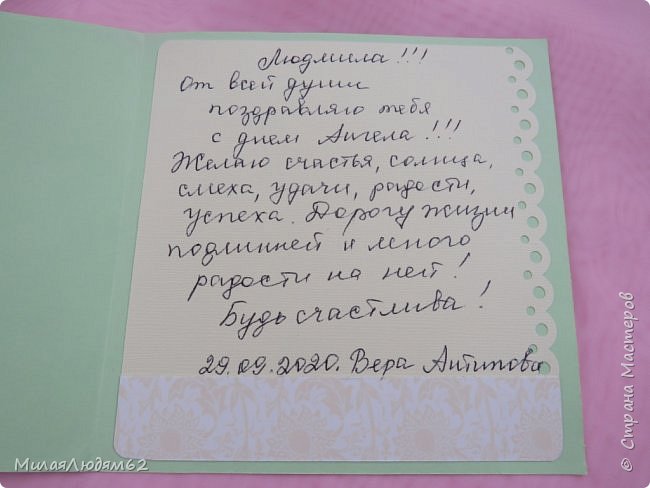 Людмила!!!
От всей души
поздравляю тебя
с днем Ангела!!!
Желаю счастья, солнца,
смеха, удачи, радости,
успеха. Дорогу жизни
подлинней и много
радости на ней!
Будь счастлива!
29.09.2020. Вера Антипова
МилаяЛюдям62
© Страна Мастеров